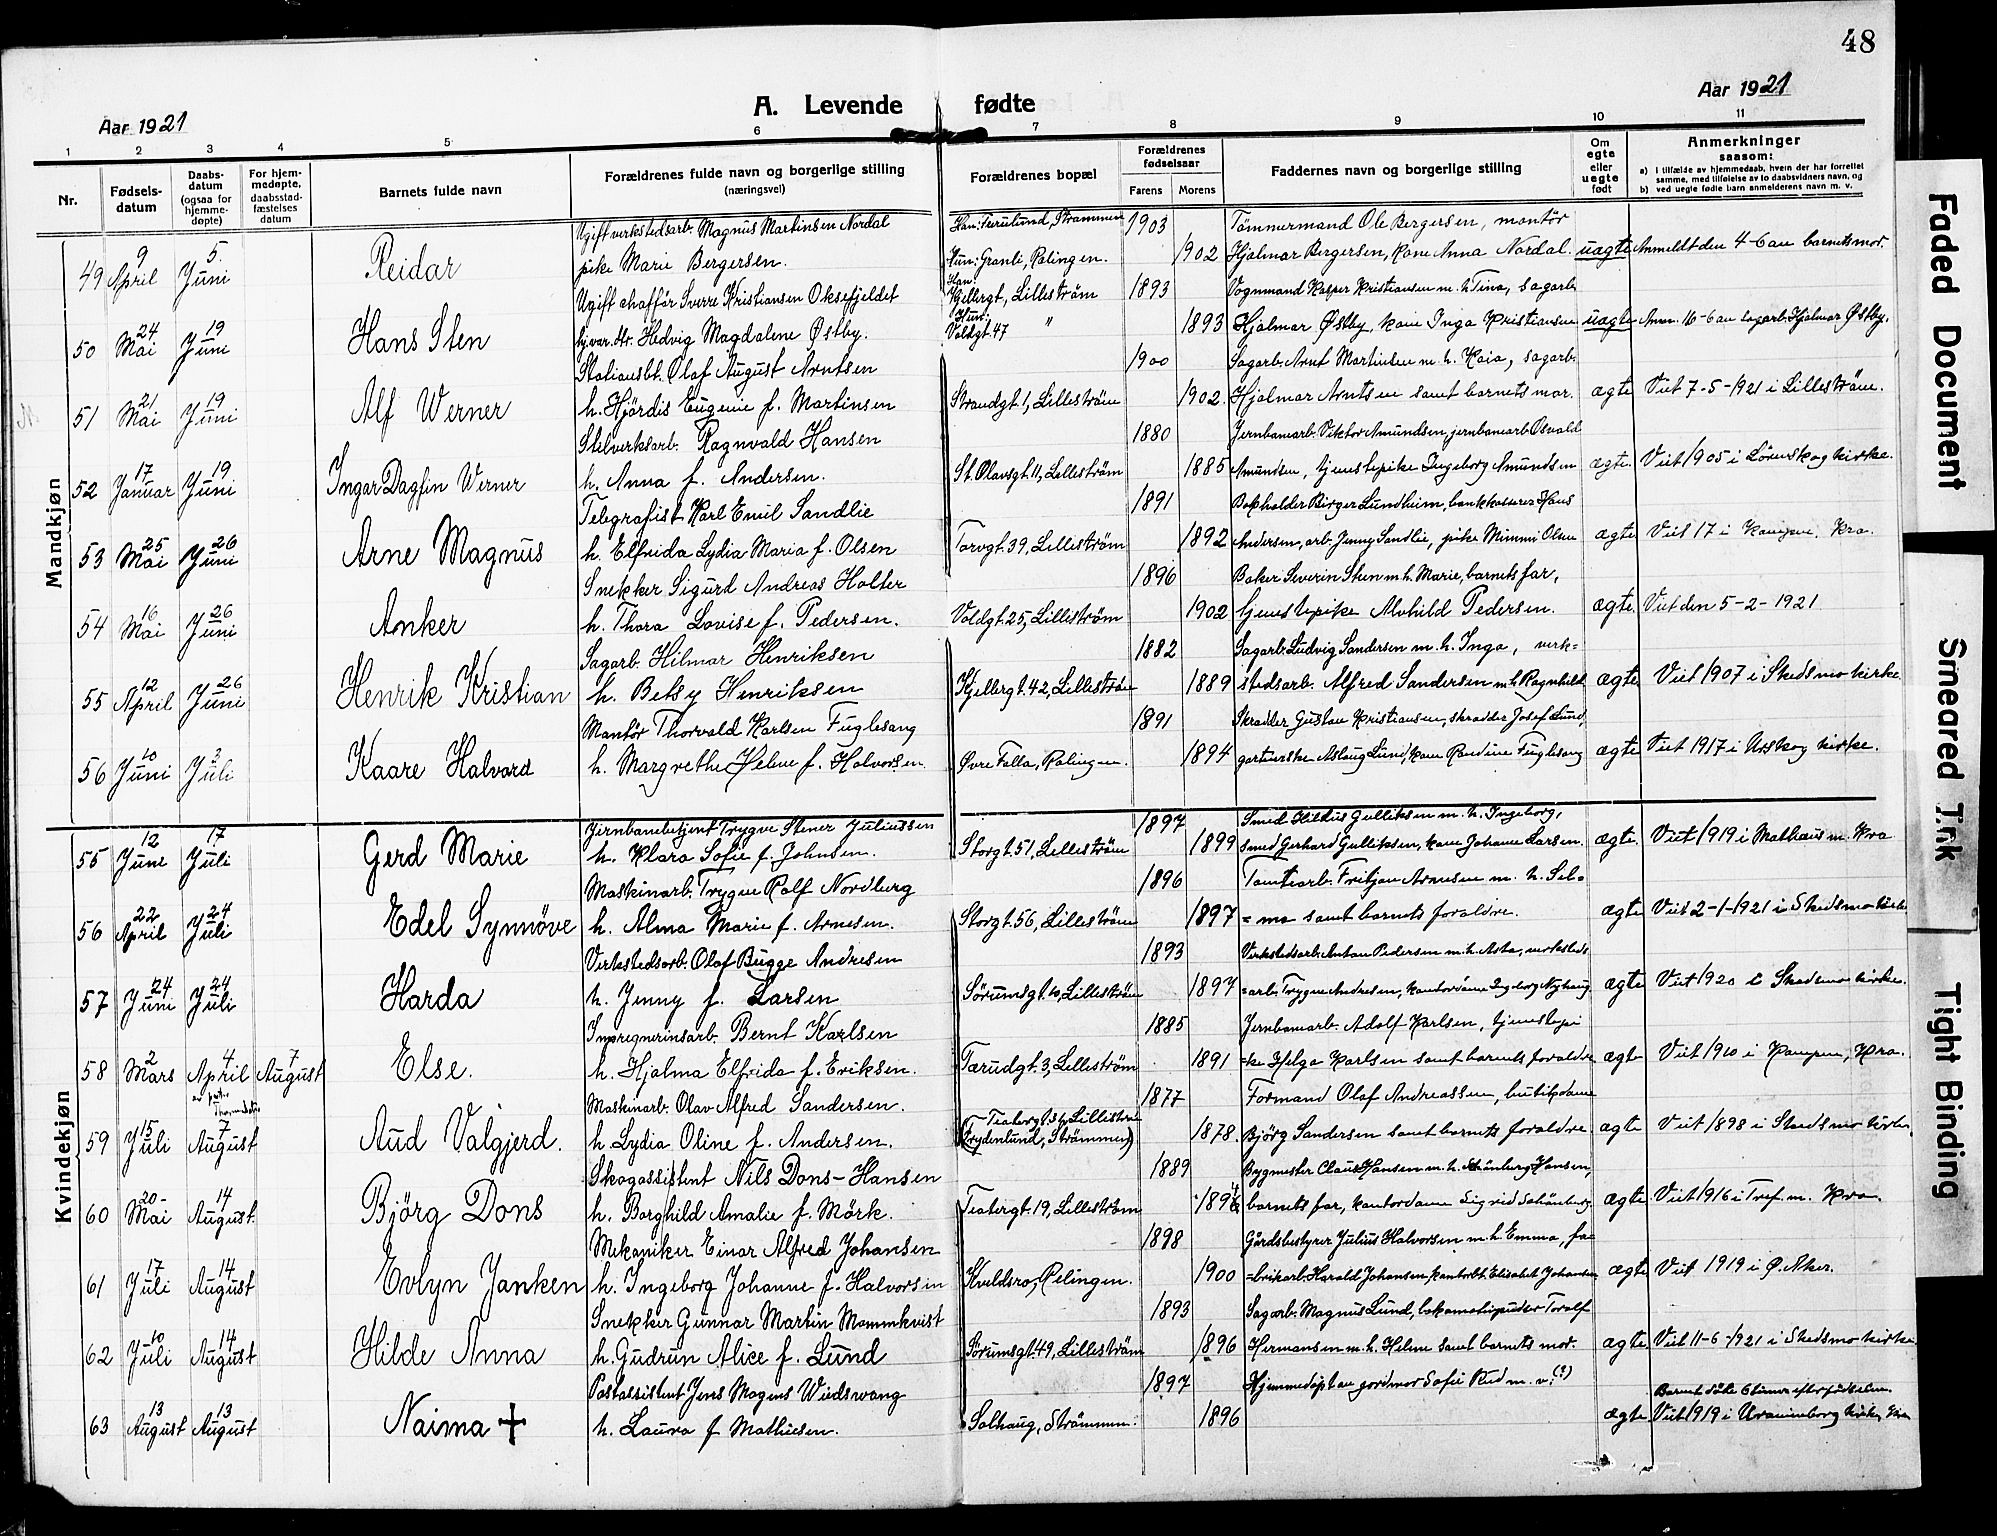 48
Aar 1921
A. Levende fødte
Aar 1921
1 2 3 4 5 6 7 8 9 10 11
Nr.
Fødsels-
datum
Daabs-
datum
(ogsaa for
hjemme-
døpte)
For hjem-
medøpte,
daabsstad-
fæstelses
datum
Barnets fulde navn
Forældrenes fulde navn og borgerlige stilling
(næringsvei)
Forældrenes bopæl
Forældrenes
fødselsaar
Farens Morens
Faddernes navn og borgerlige stilling
Om
egte
eller
uegte
født
Anmerkninger
saasom:
a) i tilfælde av hjemmedaab, hvem der har forrettet
samme, med tilføielse av to daabsvidners navn, og
b) ved uegte fødte barn anmelderens navn m. v.
Mandkjøn
Ugift verkstedsarb. Magnus Martinsen Nordal Han: Furulund, Strømmen 1903 Tømmermand Ole Bergersen, montør
49 9 April 5. Juni Reidar pike Marie Bergersen. Hun: Granli, Rælingen. 1902 Hjalmar Bergersen, kone Anna Nordal. uægte Anmeldt den 4-6 av barnets mor.
Ugift chaffør Sverre Kristiansen Oksefjeldet Han: Kjellergt, Lillestrøm 1893 Vognmand Kasper Kristiansen m. h. Tina, sagarb.
50 24 Mai 19 Juni Hans Sten Hedvig Magdalene Østby. Hun: Voldgt. 47 " 1893 Hjalmar Østby, kone Inga Kristiansen uægte Anm. 16-6 av sagarb. Hjalmar Østby.
Stationsbt. Olaf August Arntsen 1900 Sagarb. Arnt Martinsen m. h. Kaia, sagarb.
51 21 Mai 19 Juni Alf Werner h. Hjördis Eugenie f. Martinsen Strandgt. 1, Lillestrøm 1902. Hjalmar Arntsen samt barnets mor. ægte Viet 7-5-1921 i Lillestrøm.
Stilverksarb. Ragnvald Hansen 1880 Jernbanearb. Viktor Amundsen, jernbanearb. Osvald
52 17 Januar 19 Juni Ingar Dagfin Werner h. Anna f. Andersen. St. Olavsgt. 11, Lillestrøm 1885 Amundsen, tjenestepike Ingeborg Amundsen ægte. Viet 1905 i Lörenskog kirke.
Telegrafist Karl Emil Sandlie 1891 Bokholder Birger Lundheim, bankkasserer Hans
53 25 Mai 26 Juni Arne Magnus h. Elfrida Lydia Maria f. Olsen Torvgt. 39, Lillestrøm 1892 Andersen, arb. Jenny Sandlie, pike Mimmi Olsen ægte Viet 17 i Kampen. Kra.
Snekker Sigurd Andreas Holter 1896 Baker Severin Steen m. h. Marie, barnets far,
54 16 Mai 26 Juni Anker h. Thora Lovise f. Pedersen. Voldgt. 25, Lillestrøm 1902 tjenestepike Alvhild Pedersen. ægte. Viet den 5-2-1921
Sagarb. Hilmar Henriksen 1882 Sagarb. Ludvig Sandersen m. h. Inga, verk=
55 12 April 26 Juni Henrik Kristian h. Betsy Henriksen Kjellergt. 42, Lillestrøm 1889 stedsarb. Alfred Sandersen m. h. Ragnhild ægte Viet 1907 i Skedsmo kirke
Montør Thorvald Karlsen Fuglesang 1891 Skrædder Gustav Kristiansen, skrædder Josef Lund,
56 10 Juni 3 Juli Kaare Halvard h. Margrethe Helene f. Halvorsen Øvre Falla, Rælingen. 1894 Aslaug Lund, kone Randine Fuglesang ægte Viet 1917 i Urskog kirke.
Kvindekjøn
Jernbanebetjent Trygve Stener Juliussen 1897 Smed Hildus Gulliksen m. h. Ingeborg,
55 12 Juni 17 Juli Gerd Marie h. Klara Sofie f. Johnsen. Storgt. 51, Lillestrøm 1899 smed Gerhard Gulliksen, kone Johanne Larsen. ægte. Viet 1919 i Mathæus m. Kra
Maskinarb. Trygve Rolf Nordberg 1896 Tomtearb. Fritjov Arnesen m. h. Sel=
56 22 April 24 Juli Edel Synnöve h. Alma Marie f. Arnesen. Storgt. 56, Lillestrøm 1897 =ma samt barnets forældre. ægte Viet 2-1-1921 i Skedsmo kirke
Verkstedsarb. Olaf Bugge Andresen 1893 Verkstedsarb. Anton Pedersen m. h. Asta, verksteds
57 24 Juni 24 Juli Harda h. Jenny f. Larsen Sörumsgt. 10, Lillestrøm 1897 =arb. Trygve Andresen, kontordame Ingeborg Nyhaug ægte Viet 1920 i Skedsmo kirke.
Impregnerinsarb. Bernt Karlsen 1885 Jernbanearb. Adolf Karlsen, tjenestepi
58 2 Mars 4 April 7 August Else. h. Hjalma Elfrida f. Eriksen. Tærudgt. 3, Lillestrøm 1891 =ke Helga Karlsen samt barnets forældre ægte Viet 1910 i Kampen, Kra.
Maskinarb. Olav Alfred Sandersen. 1877 Formand Olaf Andreassen, butikdame
59 15 Juli 7 August Aud Valgjerd. h. Lydia Oline f. Andersen. Teatergt. 34, Lillestrøm (Frydenlund, Strømmen) 1878 Björg Sandersen samt barnets forældre ægte Viet 1898 i Skedsmo kirke.
Skogassistent Nils Dons-Hansen 1889 Bygmester Claus Hansen m. h. Schönberg Hansen,
60 20- Mai 14 August. Björg Dons h. Borghild Amalie f. Mörk. Teatergt. 19, Lillestrøm 1894 barnets far, kontordame Sigrid Schönberg ægte Viet 1916 i Tref. m. Kra.
Mekaniker Einar Alfred Johansen 1898 Gårdsbestyrer Julius Halvorsen m. h. Emma, fa
61 17 Juli 14 August Evlyn Janken h. Ingeborg Johanne f. Halvorsen Kveldsro, Rælingen. 1900 =brikarb. Harald Johansen, kontorbt. Elisabet Johansen ægte Viet 1919 i Ø. Aker.
Snekker Gunnar Martin Mommkvist 1893 Sagarb. Magnus Lund, lokomotivpudser Torolf
62 10 Juli 14 August Hilde Anna h. Gudrun Alice f. Lund Sörumsgt. 49, Lillestrøm 1896 Hermansen m. h. Helene samt barnets mor. ægte Viet 11-6-1921 i Skedsmo kirke.
Postassistent Jens Mogens Wiedswang 1897 Hjemmedöpt av jordmor Sofie Rud m. v. (?) Barnet döde 6 timer efter födselen.
63 13 August 13 August Naima + h. Laura f. Mathiesen. Solhaug, Strömmen. 1896 ægte Viet 1919 i Uranienborg kirke, Kra
Faded Document
Smeared Ink
Tight Binding